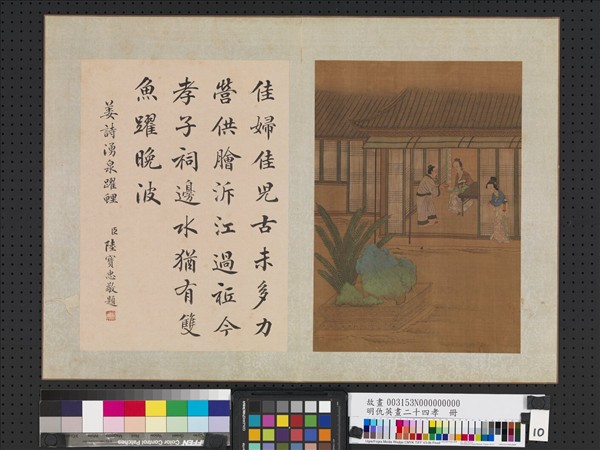 佳婦佳兒古未多力
營供膾泝江過祗今
孝子祠邊水猶有雙
魚躍晚波
姜詩湧泉躍鯉
臣陸寶忠敬題
故畫 003153N000000000
明仇英畫二十四孝 冊
10
Color Control Patches